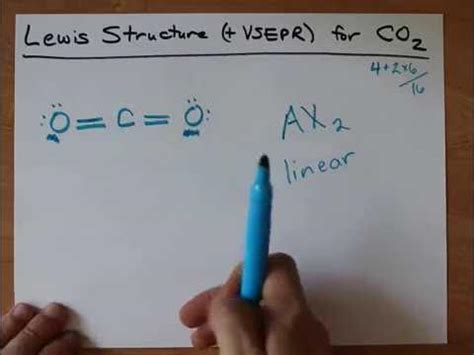 Lewis Structure (+ VSEPR) for CO₂
4+2×6
16
:Ö=C=Ö:
AX₂
linear